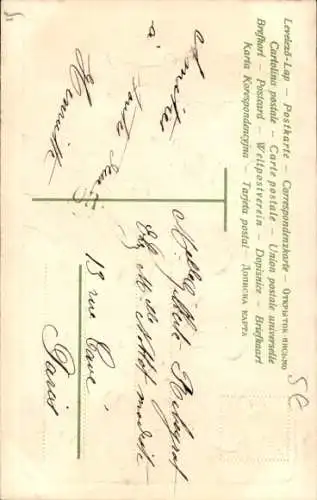 Levelező-Lap — Postkarte — Correspondenzkarte — Открытое письмо
Cartolina postale — Carte postale — Union postale universelle
Brefkort — Postcard — Weltpostverein — Dopisnice — Briefkaart
Karta Korespondencyjna — Tarjeta postal — Дописна карта
Amitiés
à
toute
Henriette
Mlle
Chez M. de
modiste
13 rue Cavé
Paris
5c